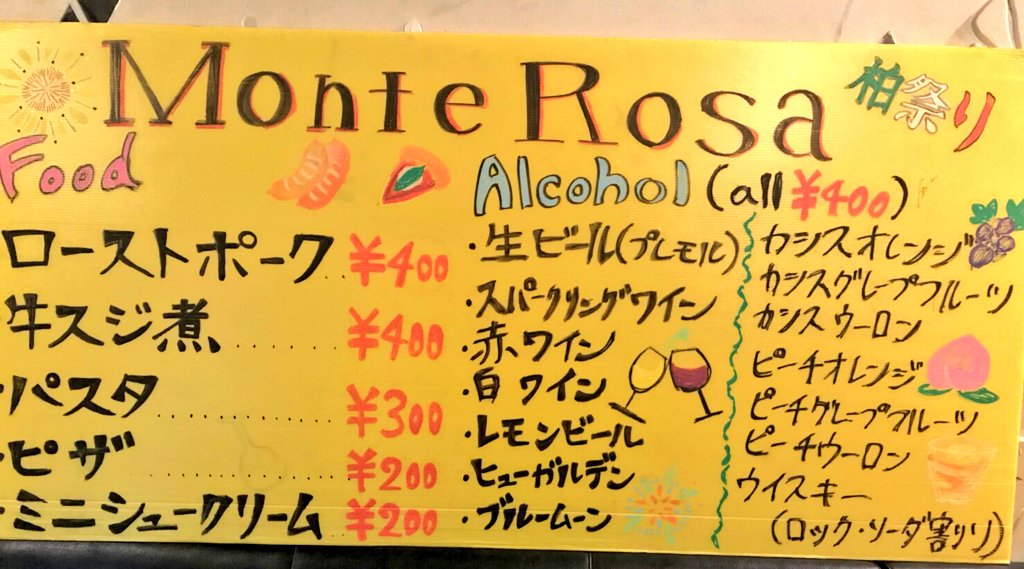 Monte Rosa
柏祭り
Food
ローストポーク‥¥400
牛スジ煮、......¥400
・パスタ..............¥300
・ピザ..............¥200
・ミニシュークリーム ¥200
Alcohol (all ¥400)
・生ビール(プレモル)
・スパークリングワイン
・赤ワイン
・白ワイン
・レモンビール
・ヒューガルデン
・ブルームーン
カシスオレンジ
カシスグレープフルーツ
カシスウーロン
ピーチオレンジ
ピーチグレープフルーツ
ピーチウーロン
ウイスキー
(ロック・ソーダ割り)